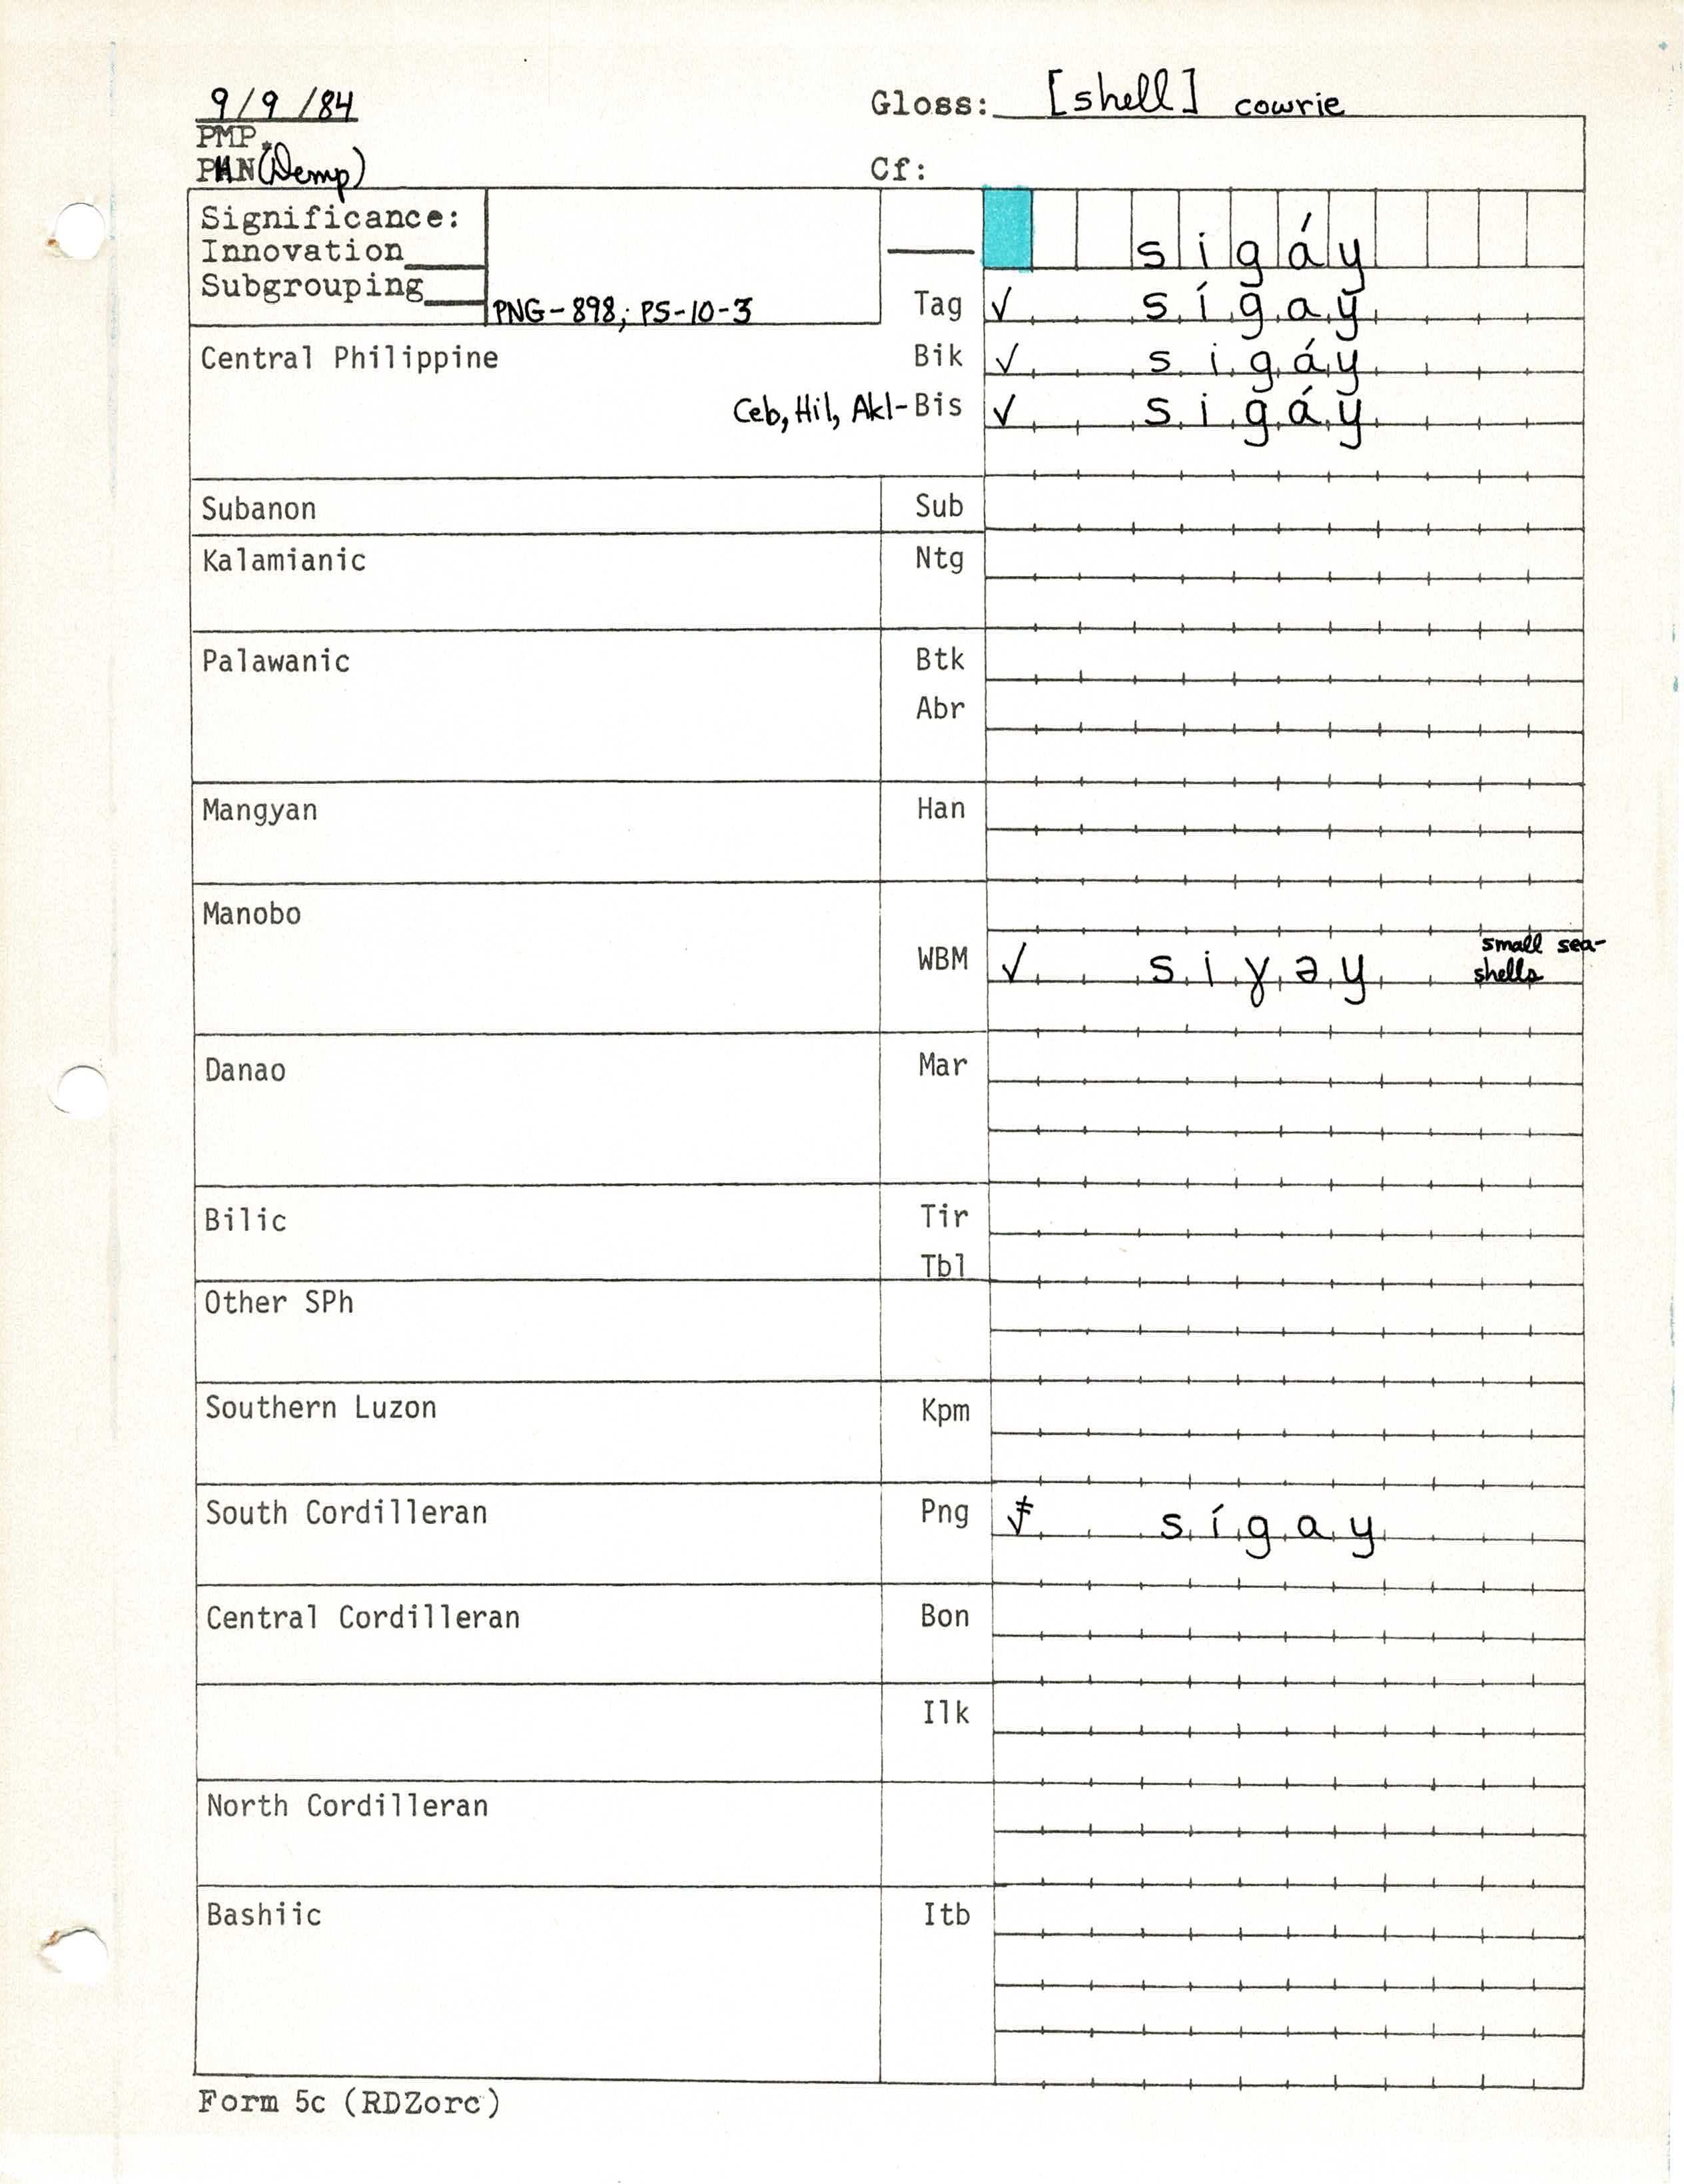 9/9/84
Gloss: [shell] cowrie
PMP.
PAN (Demp)
Cf:
Significance:
Innovation
Subgrouping
PNG-898; PS-10-3
sigáy
Tag ✓ sígay
Central Philippine Bik ✓ sigáy
Ceb, Hil, Akl-Bis ✓ sigáy
Subanon Sub
Kalamianic Ntg
Palawanic Btk
Abr
Mangyan Han
Manobo
WBM ✓ siɣəy small sea-
shells
Danao Mar
Bilic Tir
Tbl
Other SPh
Southern Luzon Kpm
South Cordilleran Png ✓ sígay
Central Cordilleran Bon
Ilk
North Cordilleran
Bashiic Itb
Form 5c (RDZorc)